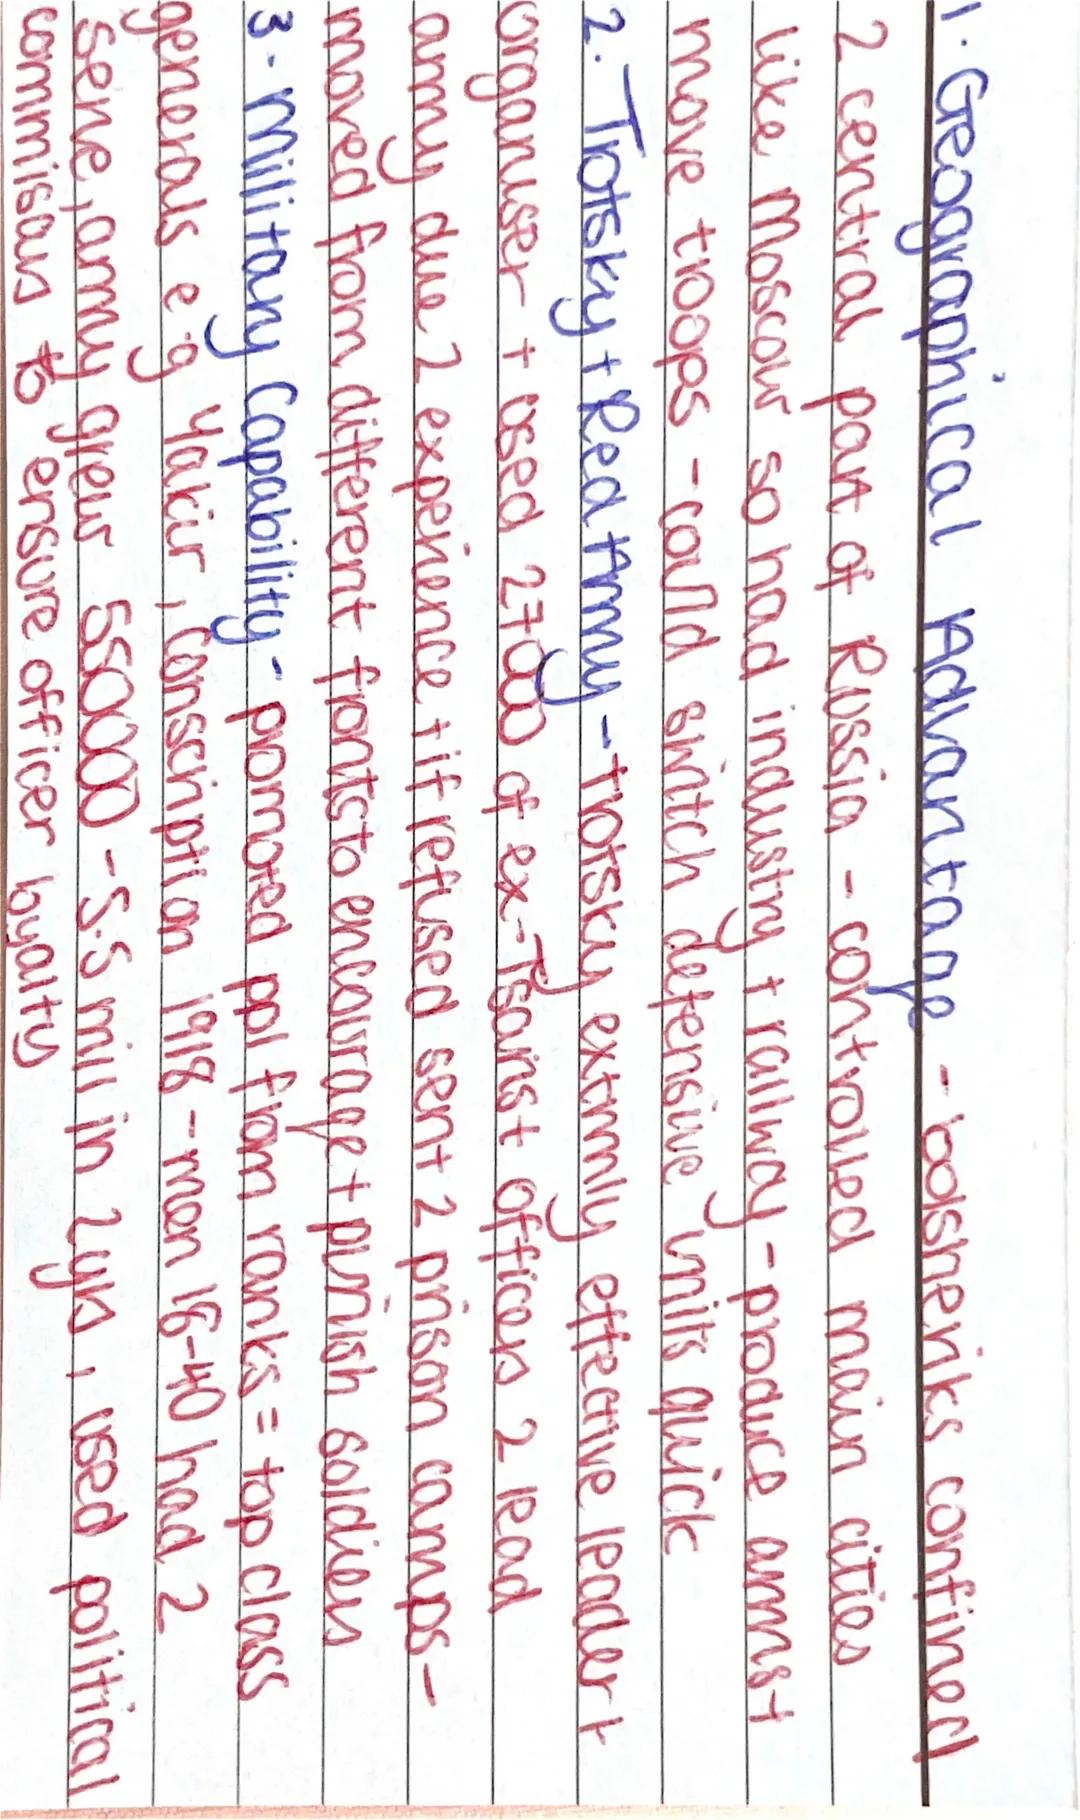 1. Geographical Advantage - bolsheviks confined
2 central part of Russia - controlled main cities
like Moscow so had industry + railway - produce arms +
move troops - could switch defensive units quick
2. Trotsky + Red Army - Trotsky extrmly effective leader +
organiser + used 27000 of ex-Tsarist officers 2 lead
army due 2 experience + if refused sent 2 prison camps -
moved from different fronts to encourage + punish soldiers
3. Millitary Capability - promoted ppl from ranks = top class
generals e.g Yakir, Conscription 1918 - men 16-40 had 2
serve, army grew 550000 - 5.5 mill in 2yrs, used political
commisars to ensure officer loyalty